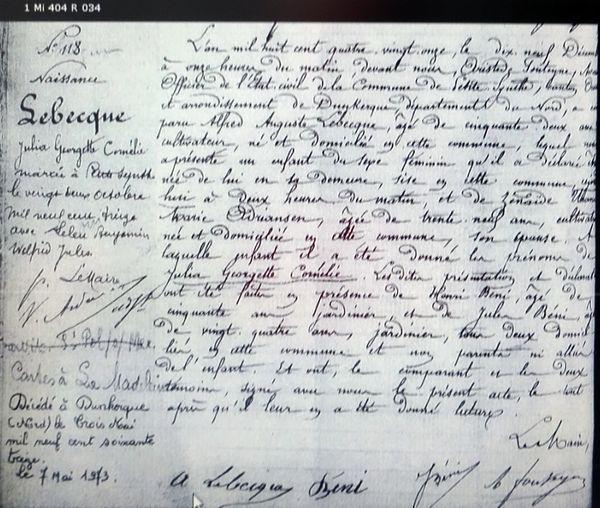 1 Mi 404 R 034
N° 118
Naissance
Lebecque
Julia Georgette Cornélie
mariée à Petite Synthe
le vingt deux octobre
mil neuf cent treize
avec Benjamin
Wilfrid Jules
Le Maire
Cartes à La Madeleine
Décédé à Dunkerque
(Nord) le trois Mai
mil neuf cent soixante
treize.
le 7 Mai 1973
L'an mil huit cent quatre-vingt-onze le dix neuf
à onze heures du matin, devant nous,
Officier de l'Etat civil de la Commune de Petite Synthe, Canton
et arrondissement de Dunkerque département du Nord, a
paru Alfred Auguste Lebecque, âgé de cinquante deux ans
cultivateur, né et domicilié en cette commune, lequel nous
a présenté un enfant du sexe féminin qu'il a déclaré
née de lui en sa demeure, sise en cette commune,
hui à deux heures du matin, et de Zénaïde
Marie, âgée de trente neuf ans,
née et domiciliée en cette commune, son épouse. A
laquelle enfant il a été donné les prénoms de
Julia Georgette Cornélie. Lesdites présentation et
ont été faites en présence de Henri Béni, âgé de
cinquante ans jardinier, et de Jules Béni,
de vingt quatre ans, jardinier, tous deux
liés en cette commune et non parents ni alliés
de l'enfant. Et ont, le comparant et les deux
témoins signé avec nous le présent acte, le tout
après qu'il leur en a été donné lecture
Le Maire,
A Lebecque Béni Béni